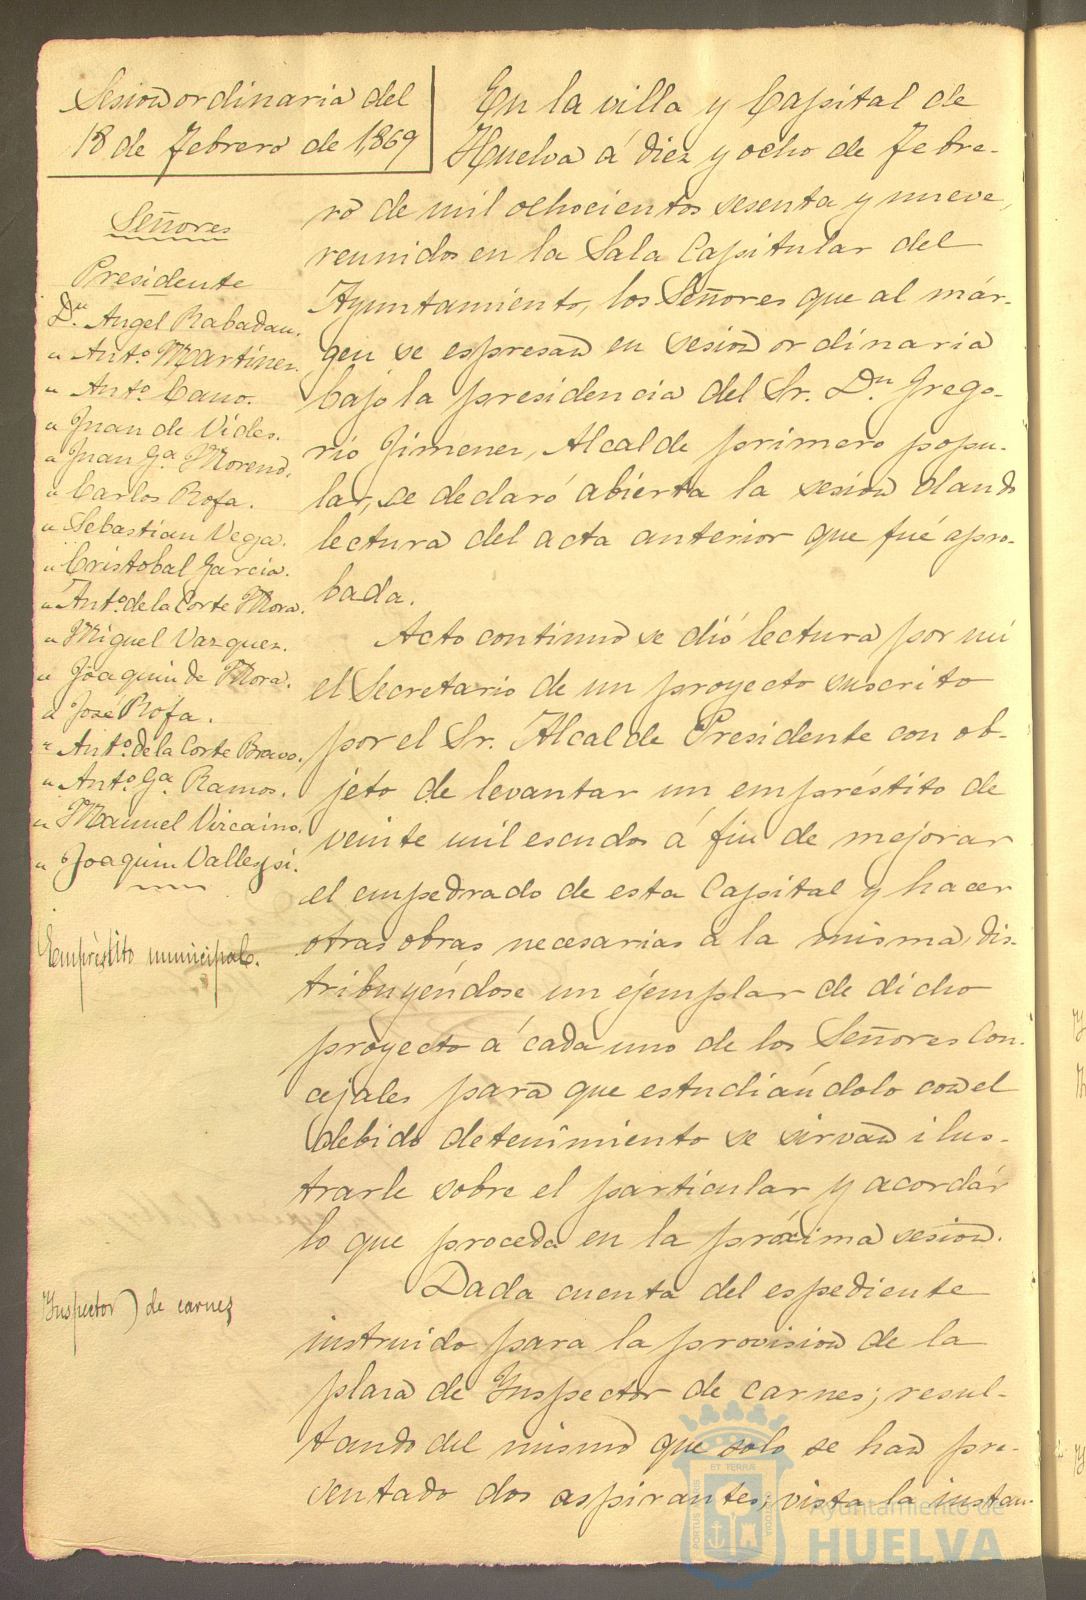 Sesion ordinaria del
18 de Febrero de 1,869
Señores
Presidente
Dn. Angel Rabadan.
" Anto. Martinez.
" Anto. Cano.
" Juan de Vides.
" Juan Ga. Moreno.
" Carlos Rofa.
" Sebastian Vega.
" Cristobal Garcia.
" Anto. de la Corte Mora.
" Miguel Vazquez.
" Joaquin de Mora.
" José Rofa.
" Anto. de la Corte Bravo.
" Anto. Ga. Ramos.
" Manuel Vizcaino.
" Joaquin Vallessi.
Empréstito municipal.
Inspector de carnes
En la villa y Capital de
Huelva á diez y ocho de Febre-
ro de mil ochocientos sesenta y nueve,
reunidos en la Sala Capitular del
Ayuntamiento, los Señores que al már-
gen se espresan en sesion ordinaria
bajo la presidencia del Sr. Dn. Grego-
rio Jimenez, Alcalde primero popu-
lar, se declaró abierta la sesion dando
lectura del acta anterior que fué apro-
bada.
Acto continuo se dió lectura por mi
el Secretario de un proyecto suscrito
por el Sr. Alcalde Presidente con ob-
jeto de levantar un empréstito de
veinte mil escudos á fin de mejorar
el empedrado de esta Capital y hacer
otras obras necesarias á la misma, dis-
tribuyéndose un ejemplar de dicho
proyecto á cada uno de los Señores Con-
cejales para que estudiándolo con el
debido detenimiento se sirvan ilus-
trarle sobre el particular y acordár
lo que proceda en la próxima sesion.
Dada cuenta del espediente
instruido para la provision de la
plaza de Inspector de carnes; resul-
tando del mismo que solo se han pre-
sentado dos aspirantes; vista la instan-
Ayuntamiento de
HUELVA